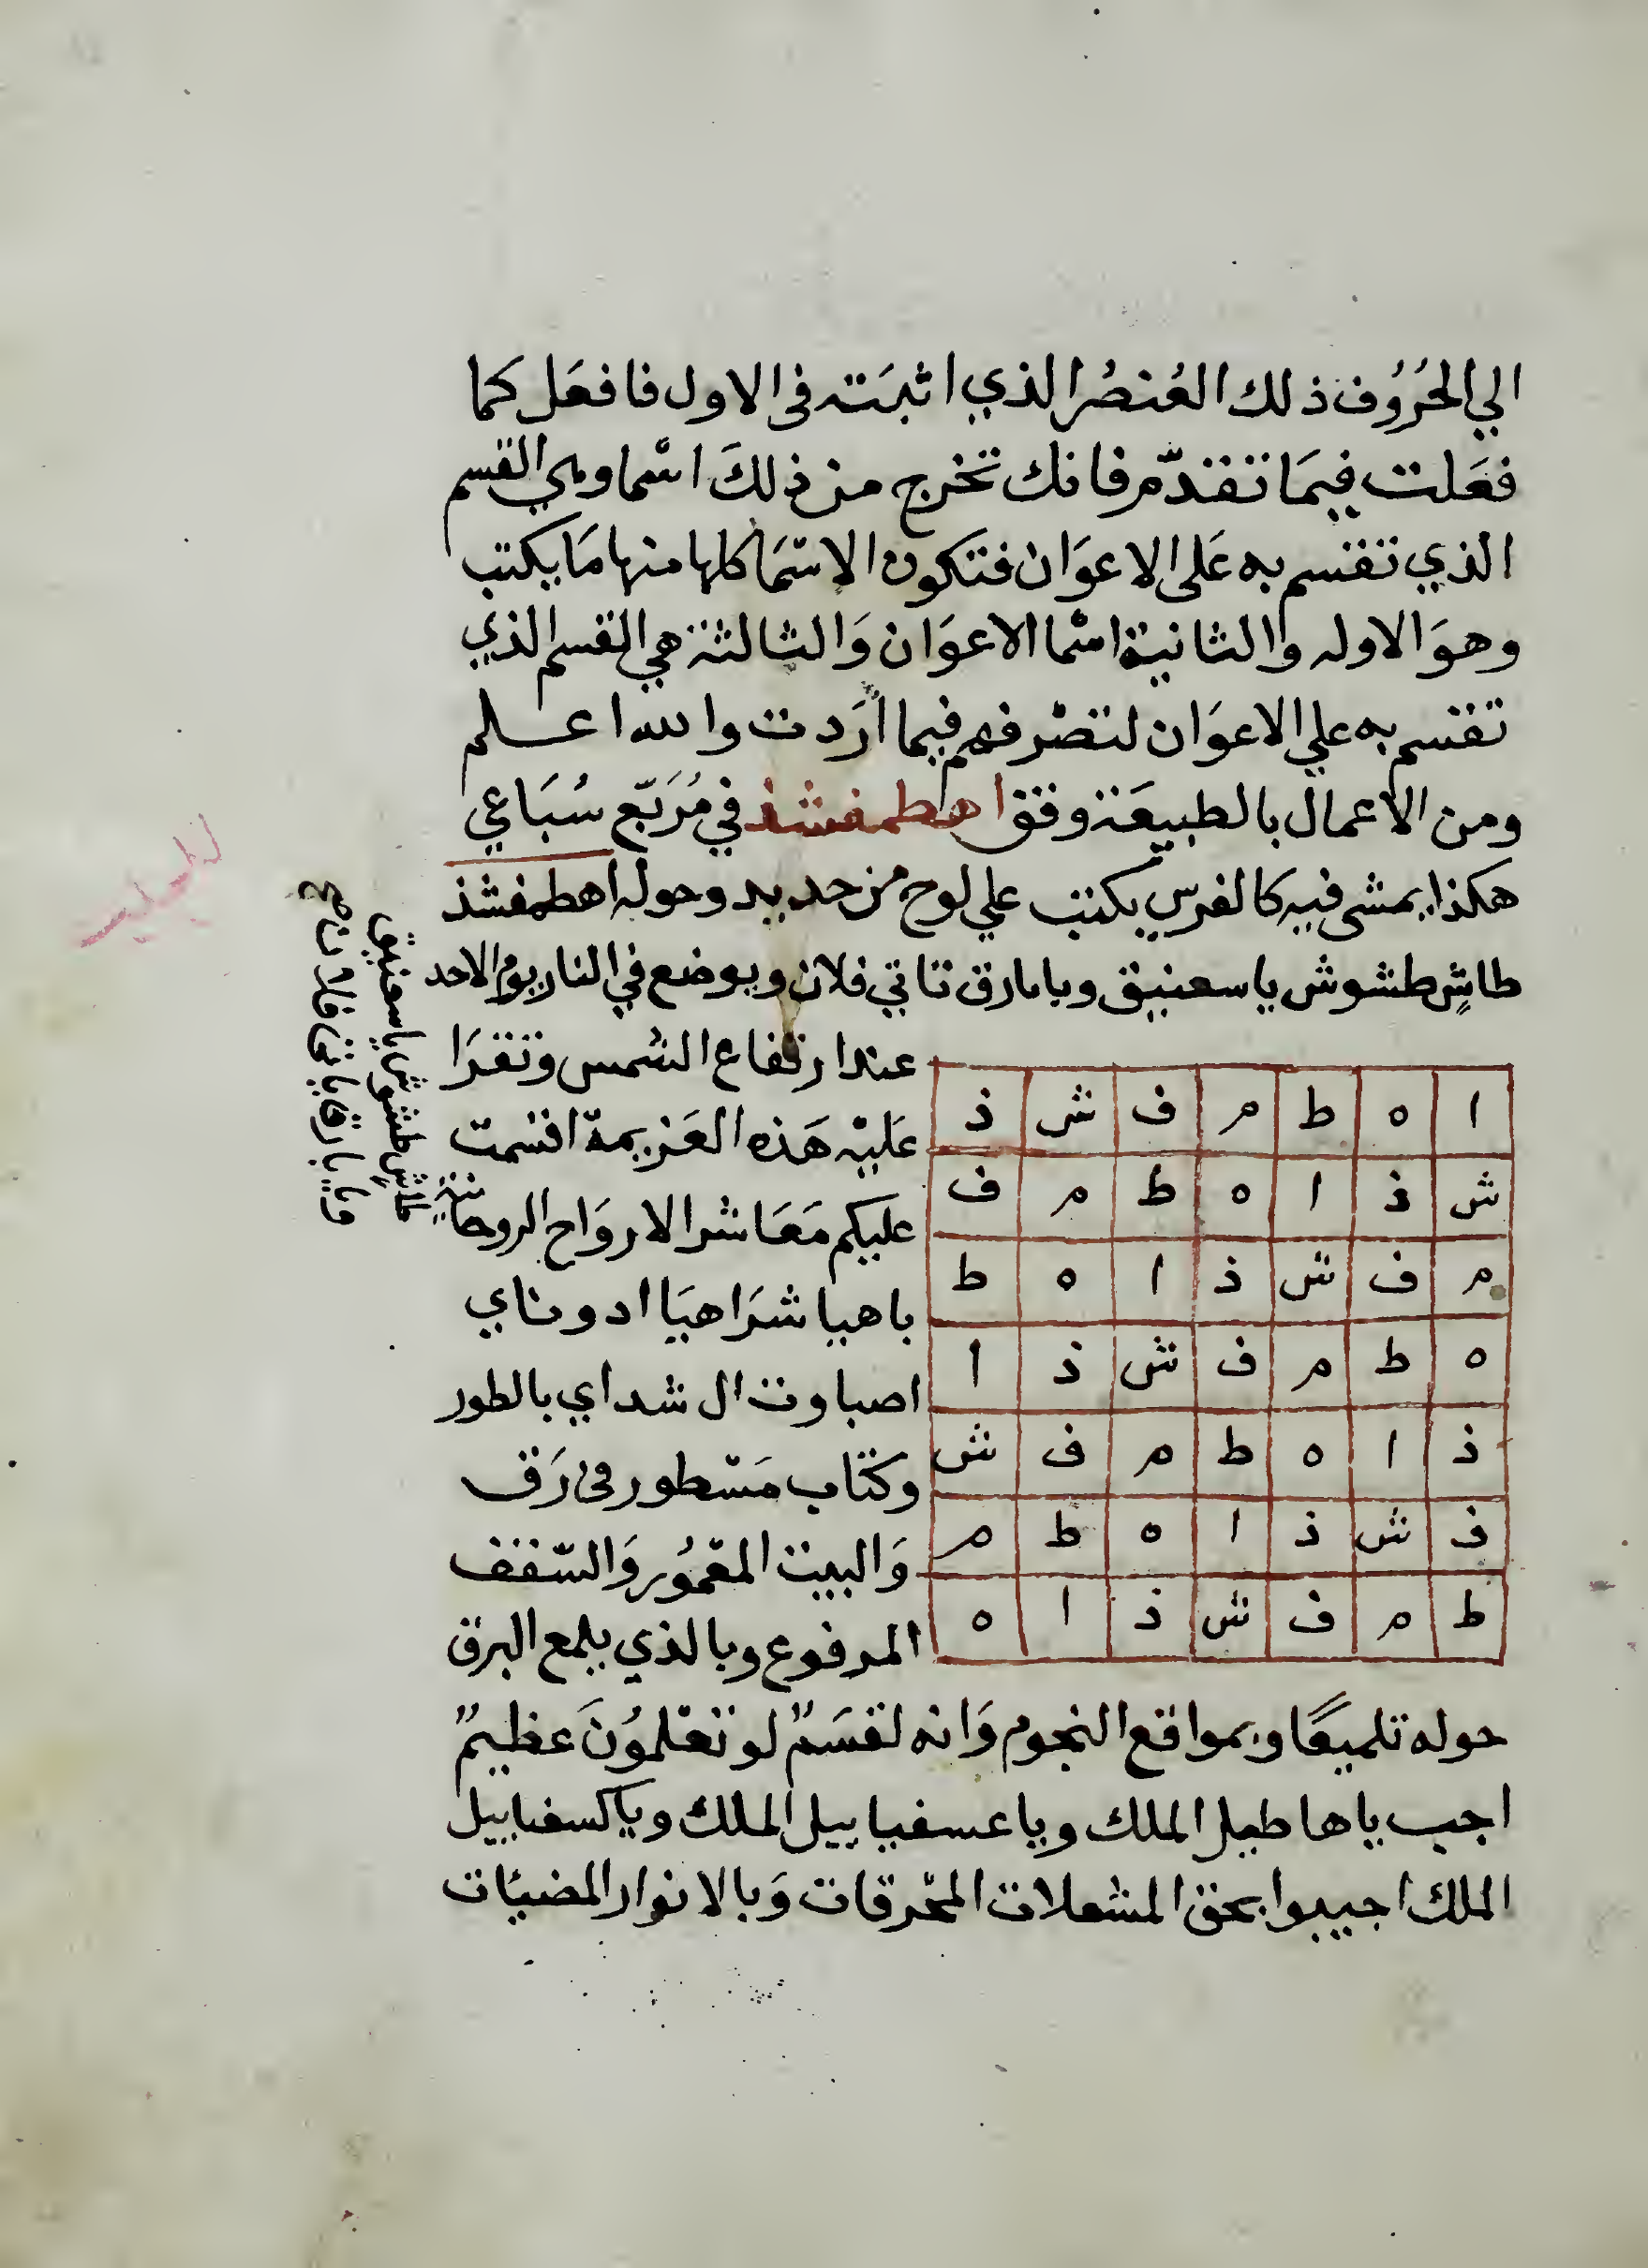 الي الحُرُوُف ذلك العُنصُر الذي اثبَته فى الاول فافعَل كما
فعَلت فيمَا تقدّم فانك تخرج من ذلكَ اسما وهي القسم
الذي تقسم به عَلى الاعوَان فتكون الاسمَا كلها منها مَا يكتب
وهوَ الاوله والثانية اسما الاعوَان وَالثالثة هي القسم الذي
تقسم به علي الاعوَان لتصْرفهم فيما اَرَدت والله اعلم
ومن الاعمال بالطبيعَة وفق اهطمفشذ في مُرَبّع سُبَاعي
هكذا يمشي فيه كالفرس يكتب علي لوح من حديد وحوله اهطمفشذ
طاشٍ طشوش ياسعنيق ويابارق تاتي فلان ويوضع في النار يوم الاحد
عند ارتفاع الشمس وتقرَا
عَليْه هَذه العَزيمة اقسمت
عليكم مَعَاشر الاروَاح الروحانية
باهيا شرَاهيَا ادوناي
اصباوت ال شداي بالطور
وكتاب مَسْطور فى رَق
وَالبيت المعْمُور وَالسّقف
المرفوع وبالذي يلمع البرق
ا ه ط م ف ش ذ
ش ذ ا ه ط م ف
م ف ش ذ ا ه ط
ه ط م ف ش ذ ا
ذ ا ه ط م ف ش
ف ش ذ ا ه ط م
ط م ف ش ذ ا ه
حوله تلميعًا وبمواقع النجوم وَانه لقسَمٌ لو تعْلمُونَ عظيمٌ
اجب ياهاطيل الملك وياعسفيابيل الملك وياكسفيابيل
الملك اجيبوا بحق المشعلات المحْرقات وَبالانوار المضيات
طاشٍ طشوش ياسعنيق
ويابارق